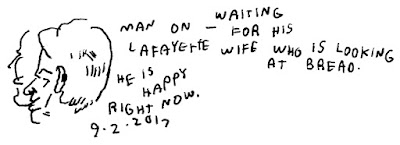 MAN ON
LAFAYETTE
— WAITING
FOR HIS
WIFE WHO IS LOOKING
AT BREAD.
HE IS
HAPPY
RIGHT NOW.
9.2.2017